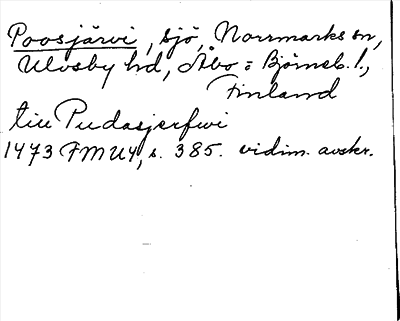 Poosjärvi, sjö, Norrmarks sn,
Ulvsby hd, Åbo = Björneb. l.,
Finland
till Pudasjerfwi
1473 FMU4, s. 385. vidim. avskr.